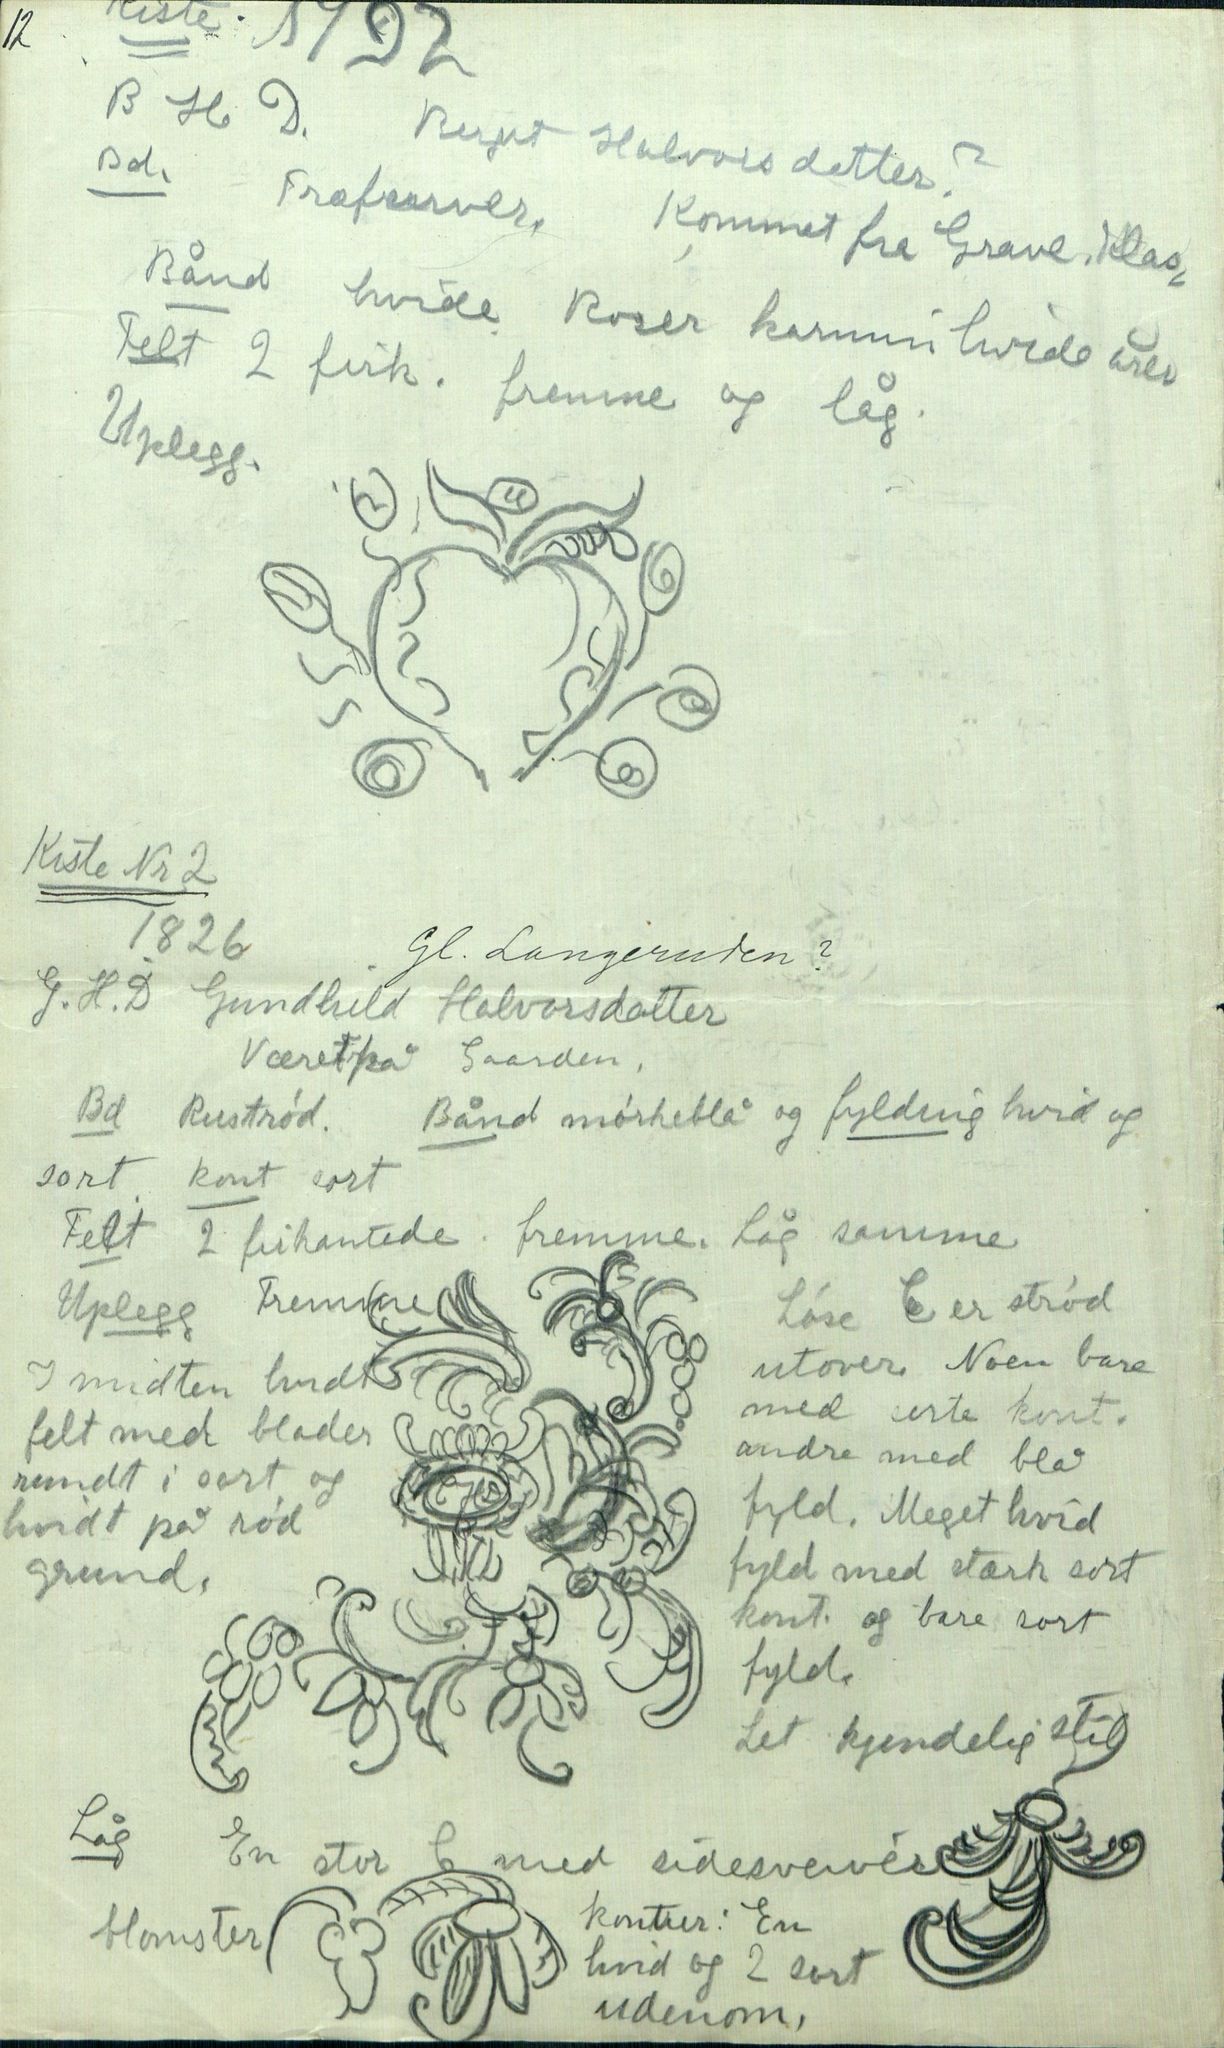 12
Kiste. 1792
B H D. Birgit Halvorsdatter?
Bd. Træfarver. Kommet fra Grave. Klas,
Bånd hvide Roser karmin hvide årer
Felt 2 firk. fremme og låg.
Uplegg.
Kiste Nr 2
1826
Gl. Langeruden?
G.H.D Gundhild Halvorsdatter
Været på Gaarden.
Bd Rustrød. Bånd mørkeblå og fyldnig hvid og
sort. kont sort
Felt 2 firkantede. fremme. Låg samme
Uplegg Fremme
I midten hvidt
felt med blader
rundt i sort og
hvidt på rød
grund.
Løse C er strød
utover. Noen bare
med sorte kont.
andre med blå
fyld. Meget hvid
fyld med stærk sort
kont. og bare sort
fyld.
Let kjendelig stil
Låg En stor C med
blomster
konturer: En
hvid og 2 sort
udenom.